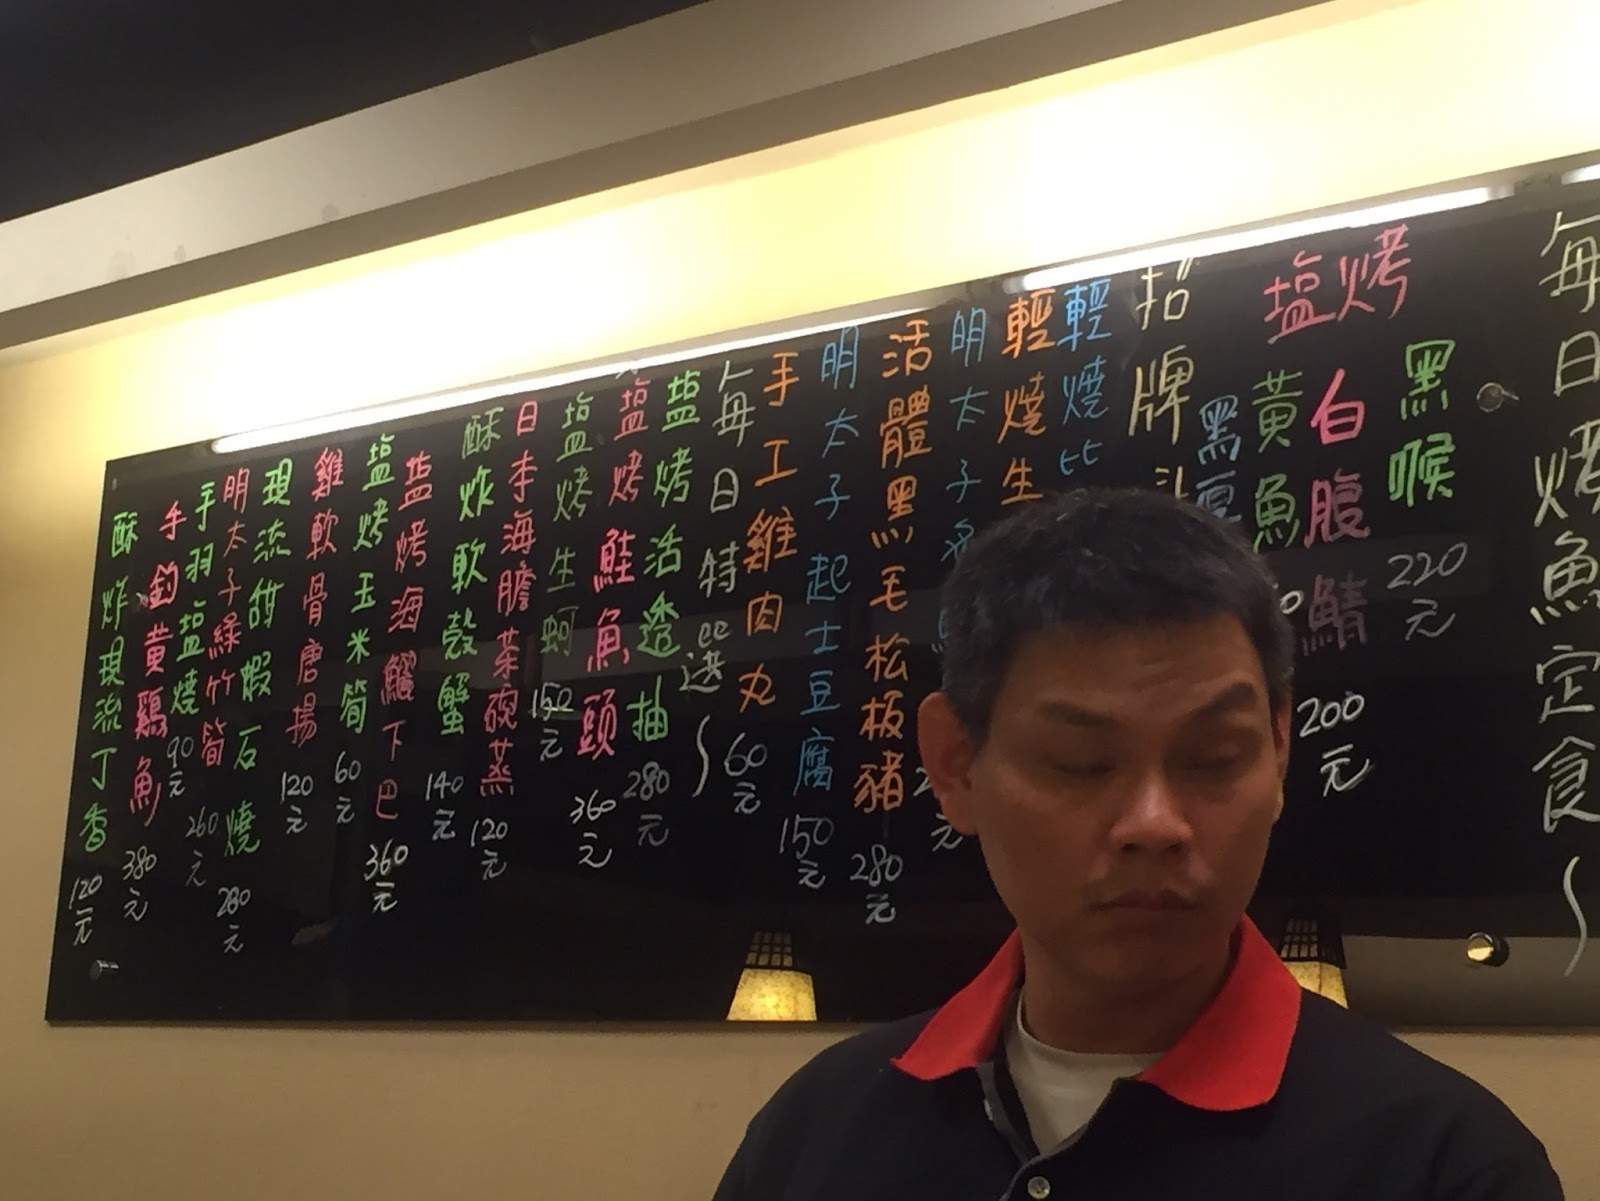 每日烤魚定食～
黑喉220元
塩烤
白腹鯖200元
黃魚
招牌
輕燒
輕燒生
明太子
活體黑毛松板豬280元
明太子起士豆腐150元
手工雞肉丸60元
每日特選～
塩烤活透抽280元
塩烤鮭魚頭360元
塩烤生蚵150元
日本海膽茶碗蒸120元
酥炸軟殼蟹140元
塩烤海鱺下巴360元
塩烤玉米筍60元
雞軟骨唐揚120元
現流甜蝦石燒280元
明太子綠竹筍260元
手羽塩燒90元
手釣黃鷄魚380元
酥炸現流丁香120元